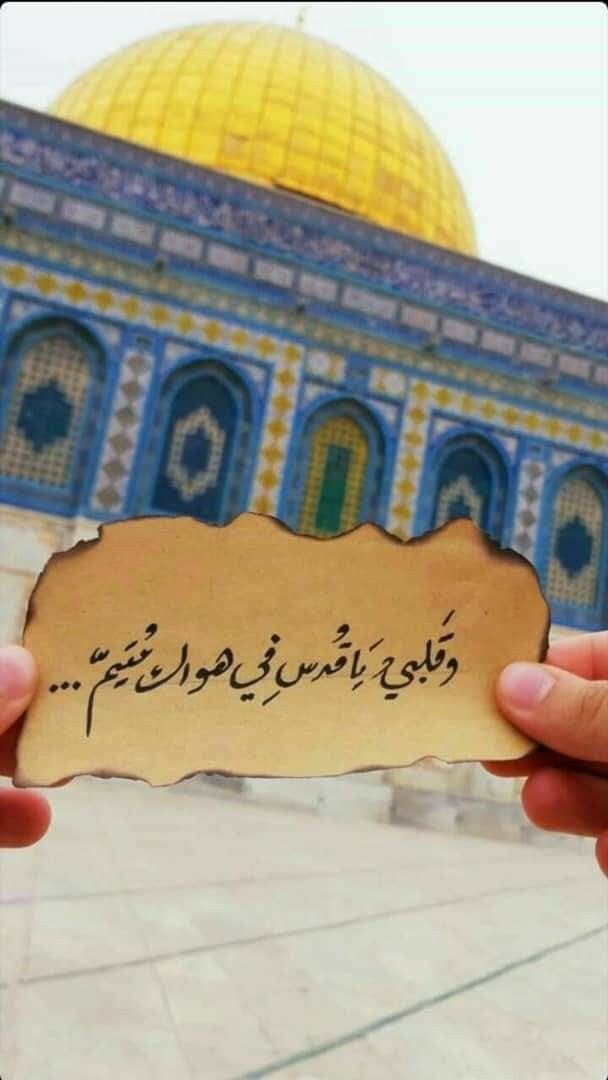 وَقَلبِي يَا قُدسِ فِي هواكِ مُتَيمّ ...